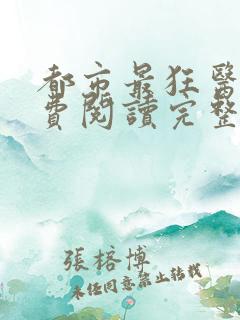 都市最狂醫
費閱讀完整
張榕博
未經同意禁止轉載